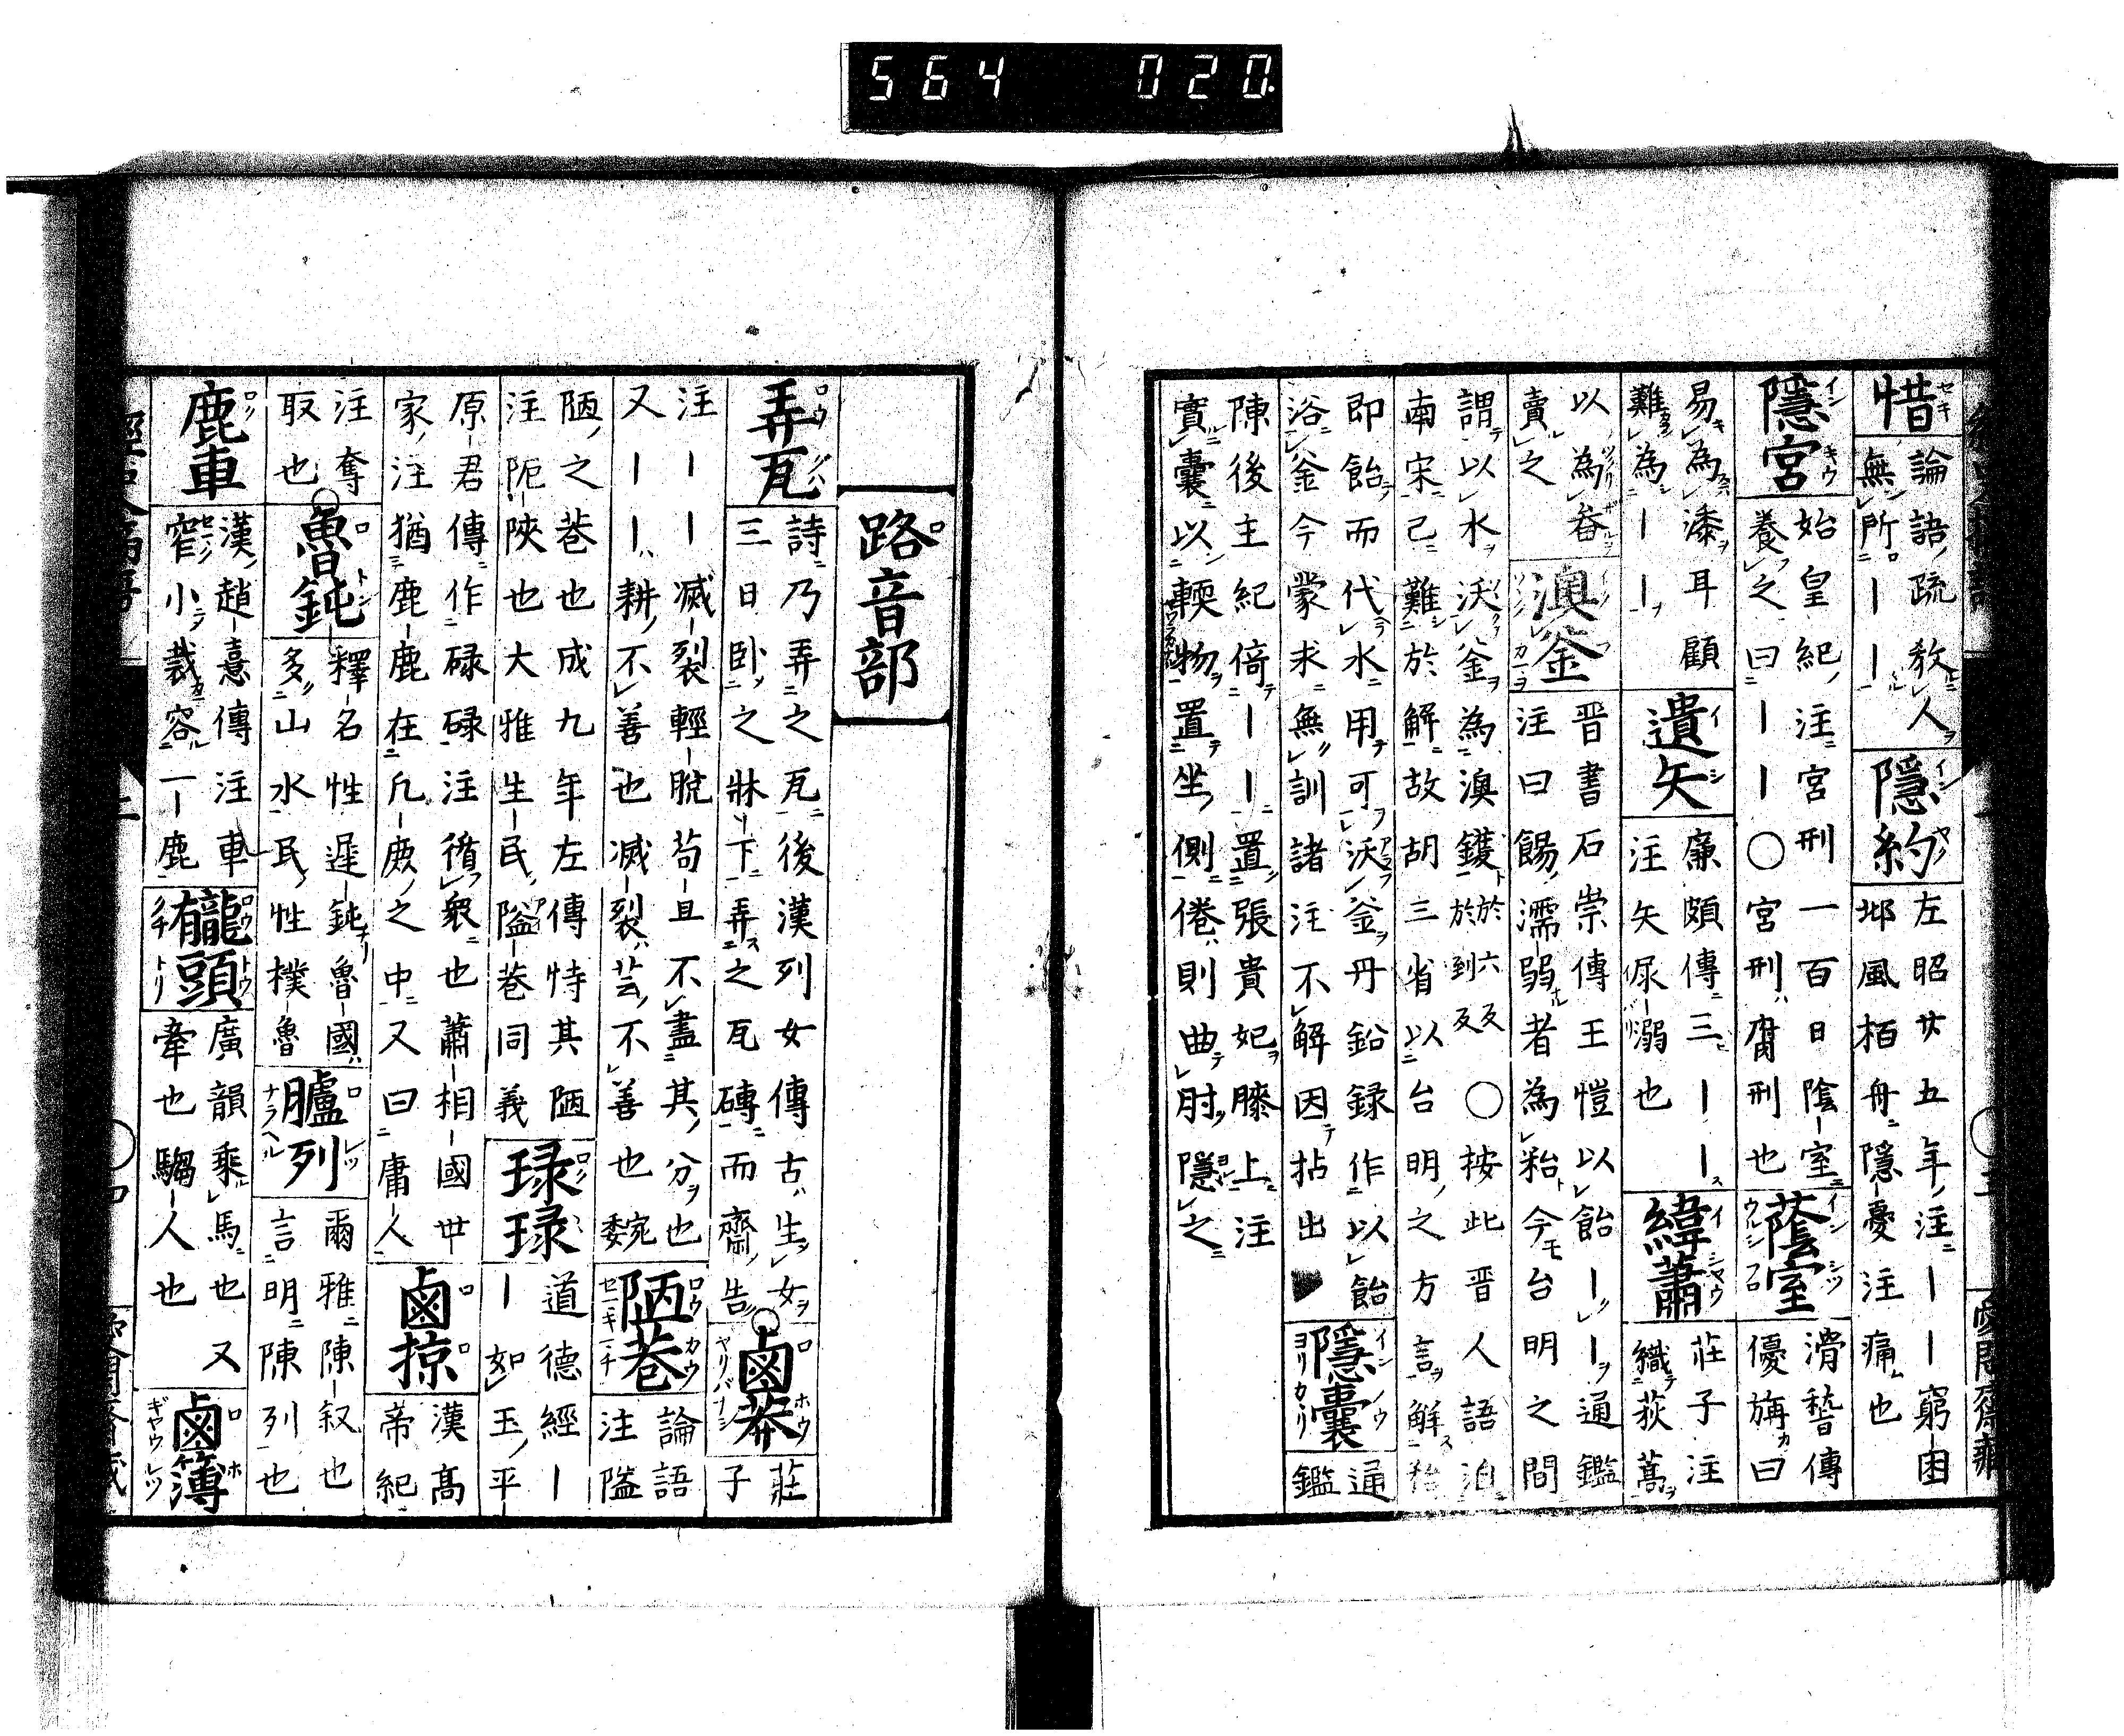 564 020.
惜 論語疏教人
無所｜｜
隱約 左昭廿五年注｜｜窮困
邶風栢舟隱憂注痛也
隱宮 始皇紀注宮刑一百日陰室
養之曰｜｜〇宮刑腐刑也
蔭室 滑稽傳
優旃曰
易為漆耳顧
難為｜｜
遺矢 廉頗傳三｜｜
注矢㞙溺也
緯蕭 莊子注
織荻蒿
以為
賣之
澳釜 晋書石崇傳王愷以飴｜｜通鑑
注曰餳濡弱者為粘今台明之間
謂以水沃釜為澳鑊於六反於到反〇按此晋人語
南宋己難於解故胡三省以台明之方言解
即飴而代水用可沃釜丹鉛録作以飴
浴釜今蒙求無訓諸注不解因拈出
隱囊 通
鑑
陳後主紀倚｜｜置張貴妃膝上注
實囊以輭物置坐側倦則曲肘隱之
路音部
弄瓦 詩乃弄之瓦後漢列女傳古生女
三日卧之牀下弄之瓦磚而齋告
鹵莽 莊
子
注｜｜滅裂輕脫苟且不盡其分也
又｜｜耕不善也滅裂芸不善也
陋巷 論語
注隘
陋之巷也成九年左傳恃其陋
注陋陜也大雅生民隘巷同義
琭琭 道德經｜
｜如玉平
原君傳作碌碌注循衆也蕭相國世
家注猶鹿鹿在凡庶之中又曰庸人
鹵掠 漢高
帝紀
注奪
取也
魯鈍 釋名性遲鈍魯國
多山水民性樸魯
臚列 爾雅陳叙也
言明陳列也
鹿車 漢趙憙傳注車
窄小裁容一鹿
䪊頭 廣韻乘馬也又
牽也騶人也
鹵簿